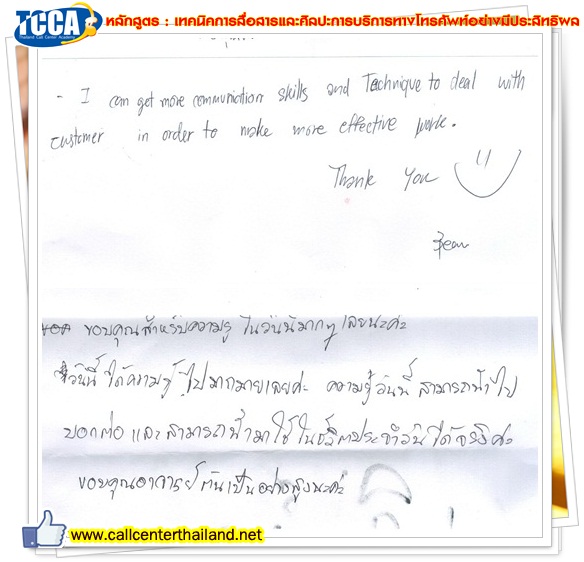 TCCA
Thailand Call Center Academy
หลักสูตร : เทคนิคการสื่อสารและศิลปะการบริการทางโทรศัพท์อย่างมีประสิทธิผล
- I can get more communiction skills and Technique to deal with
customer in order to make more effective work.
Thank You
ขอบคุณสำหรับความรู้ ในวันนี้มากๆ เลยนะค่ะ
วันนี้ ได้ความรู้ ไปมากมายเลยค่ะ ความรู้วันนี้ สามารถนำไป
บอกต่อ และสามารถนำมาใช้ในชีวิตประจำวัน ได้จริงค่ะ
ขอบคุณอาจารย์ต้นเป็นอย่างสูงนะค่ะ
www.callcenterthailand.net